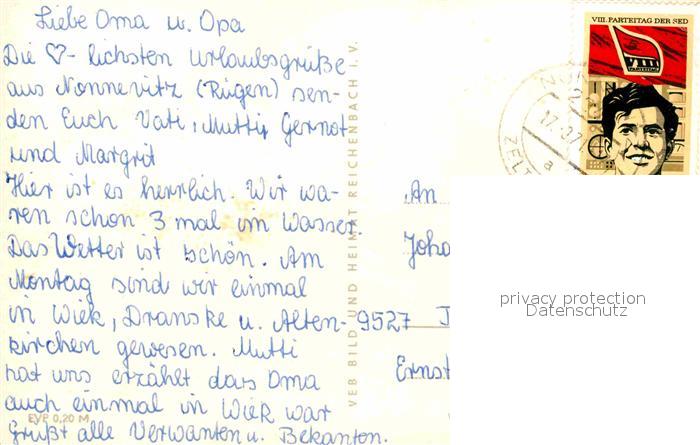 Liebe Oma u. Opa
Die ♡-lichsten Urlaubsgrüße
aus Nonnevitz (Rügen) sen-
den Euch Vati, Mutti, Gernot
und Margrit
Hier ist es herrlich. Wir wa-
ren schon 3 mal im Wasser.
Das Wetter ist schön. Am
Montag sind wir einmal
in Wiek, Dranske u. Alten-
kirchen gewesen. Mutti
hat uns erzählt das Oma
auch einmal in Wiek war
Grüßt alle Verwanten u. Bekanten.
EVP 0,20 M
VEB BILD UND HEIMAT REICHENBACH I. V.
VIII. PARTEITAG DER SED
VIII
PARTEITAG
17.
ZELT
a
An
Joha
9527
Ernst
privacy protection
Datenschutz